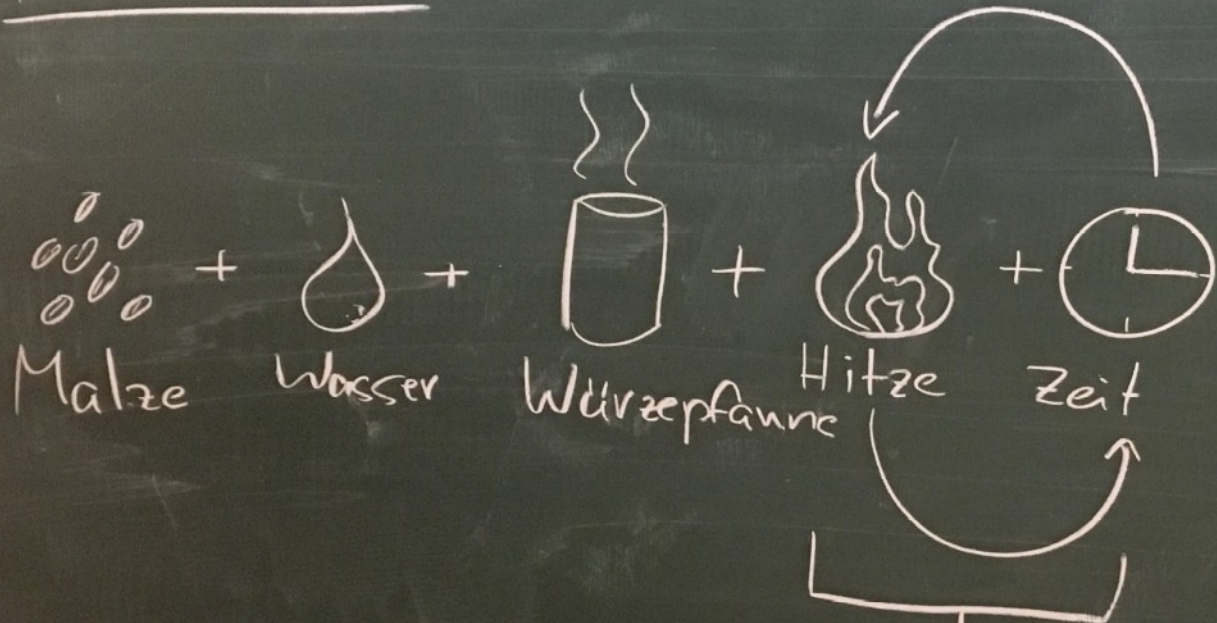 Malze + Wasser + Würzepfanne + Hitze + Zeit